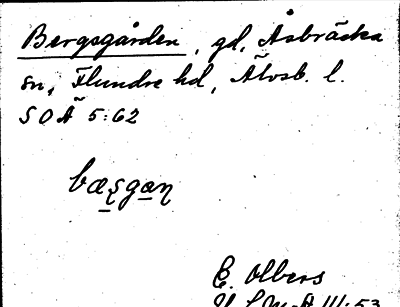 Bergsgården, gd, Åsbräcka
sn, Flundre hd, Älvsb. l.
SOÄ 5:62
bæșgæn
E. Olbers
III:53